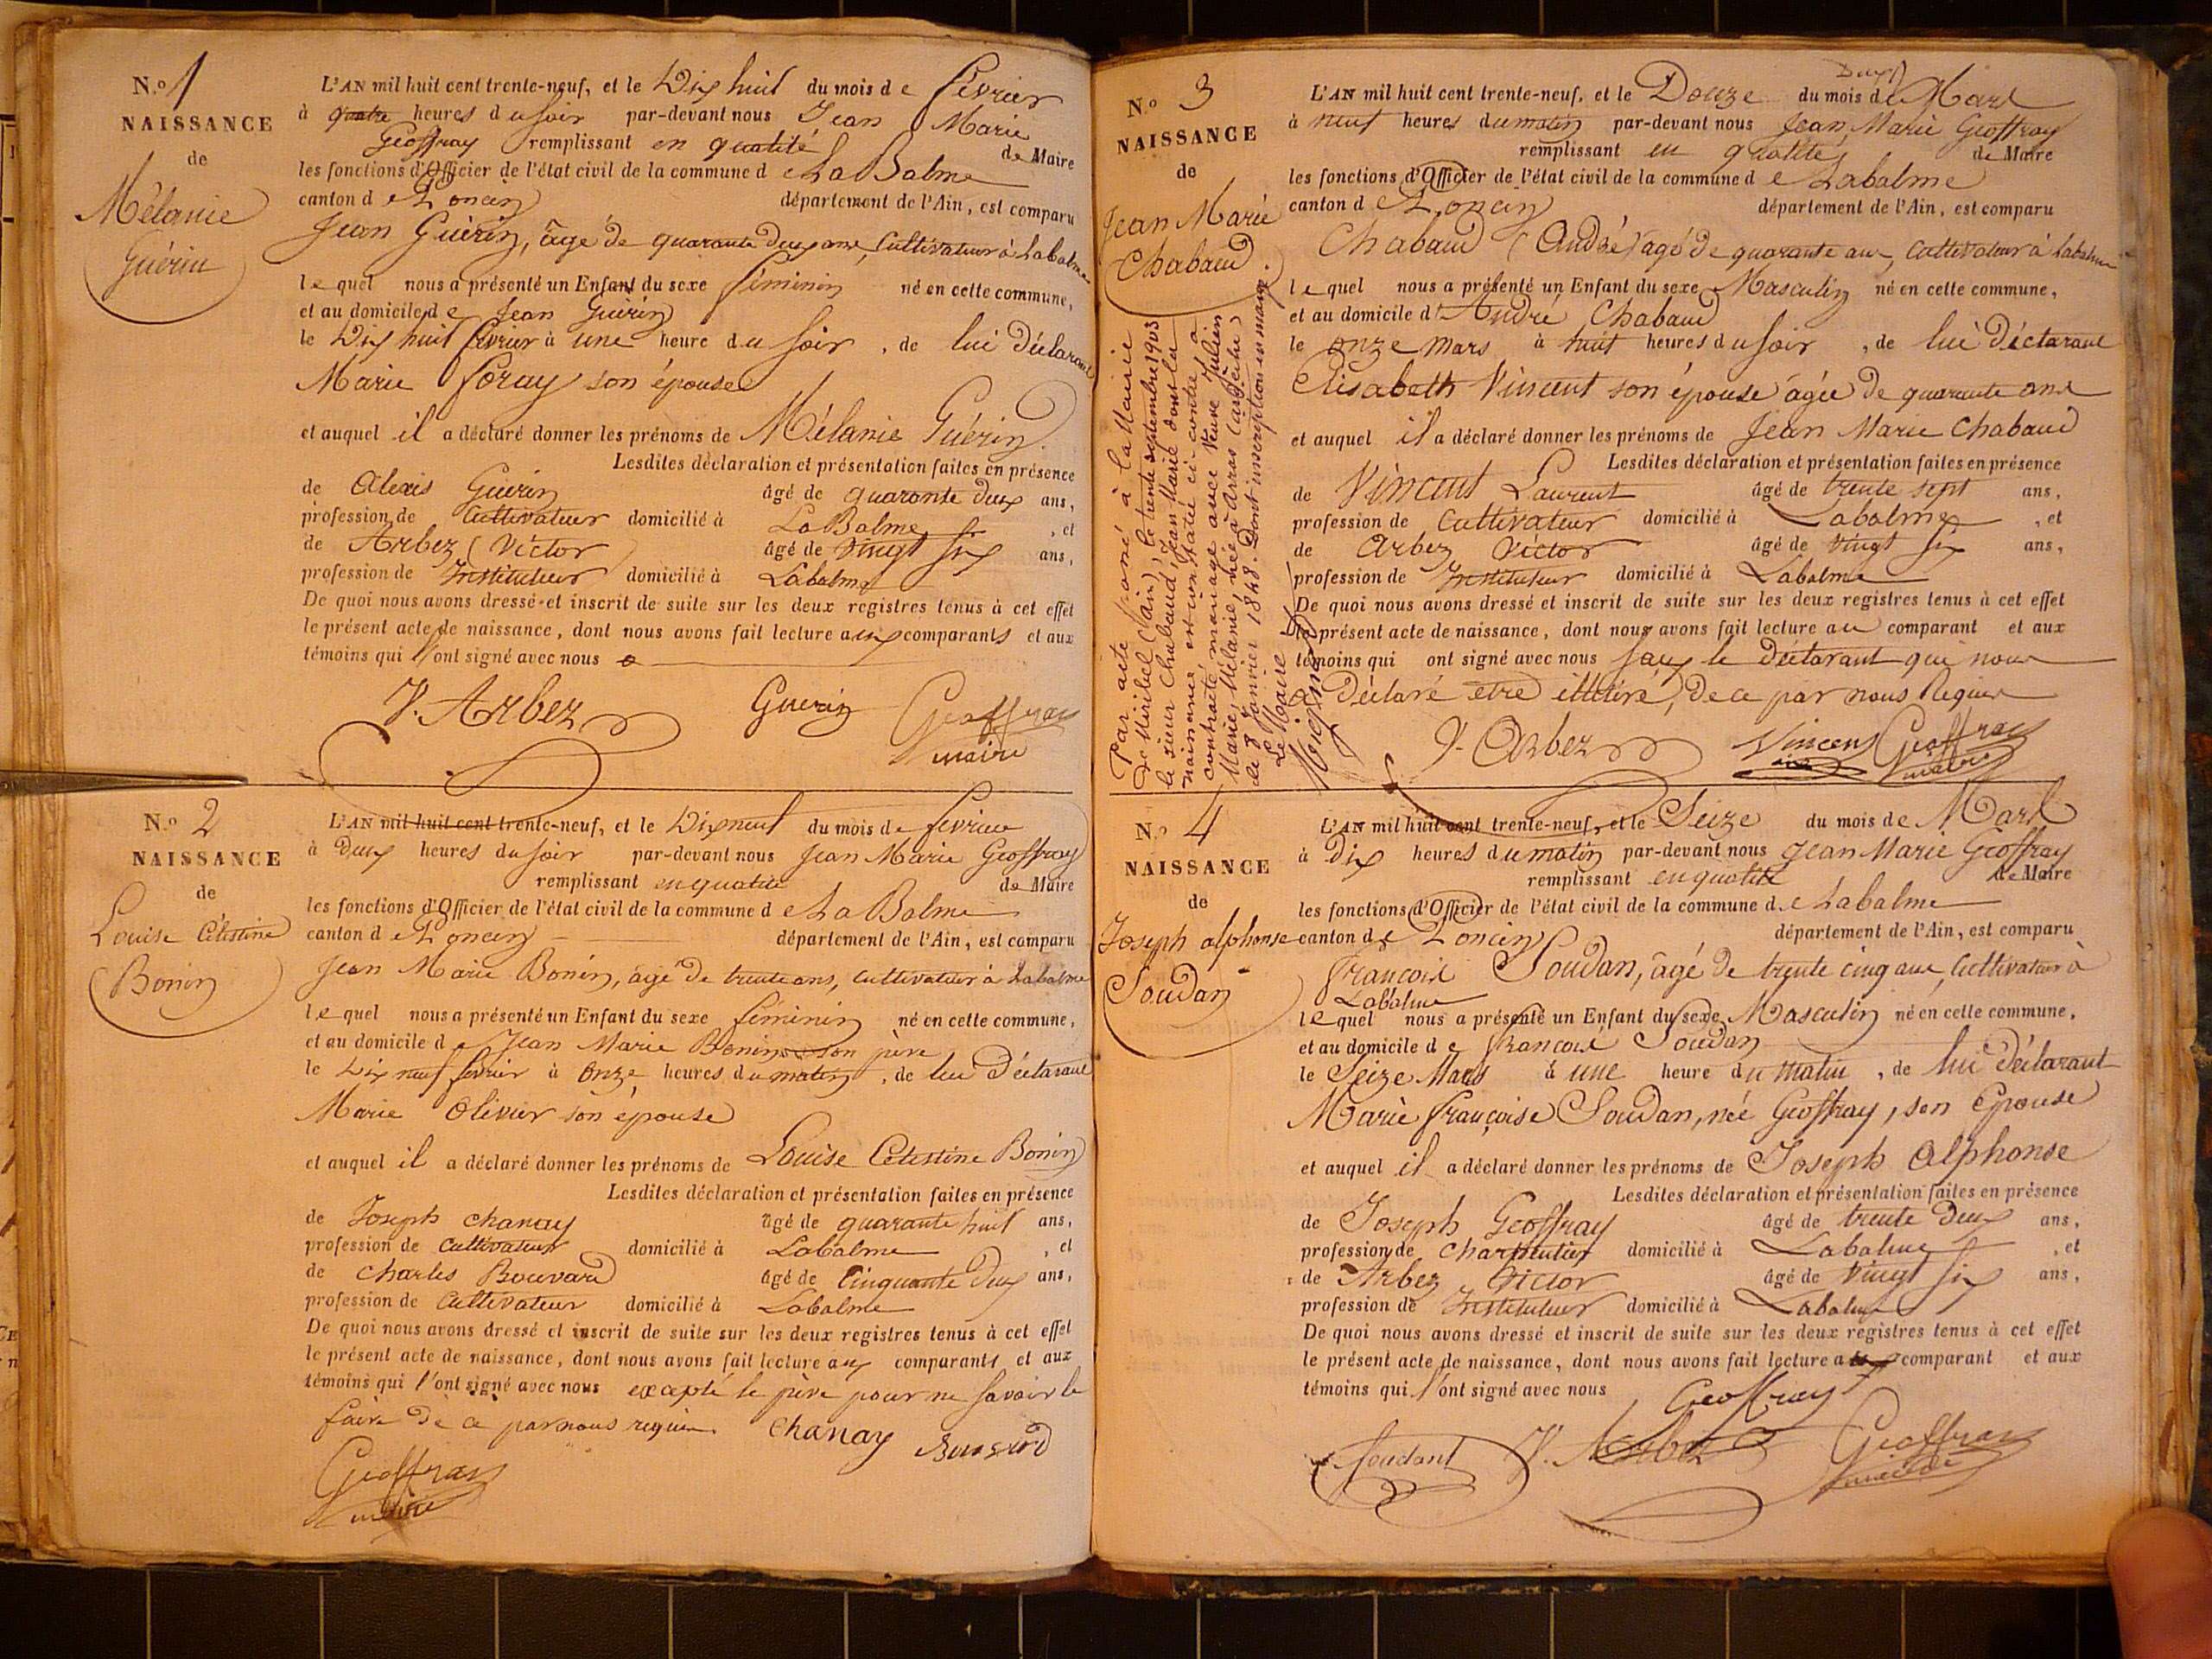 N.o 1
NAISSANCE
de
Mélanie
Guérin
L'AN mil huit cent trente-neuf, et le Dix huit du mois de février
à quatre heures du soir par-devant nous Jean Marie
Geoffray remplissant en qualité de Maire
les fonctions d'Officier de l'état civil de la commune de La Balme
canton de Poncin département de l'Ain, est comparu
Jean Guérin, âgé de quarante deux ans, Cultivateur à Labalme
lequel nous a présenté un Enfant du sexe féminin né en cette commune,
et au domicile de Jean Guérin
le Dix huit février à une heure du soir, de lui Déclarant
Marie Foray son épouse
et auquel il a déclaré donner les prénoms de Mélanie Guérin.
Lesdites déclaration et présentation faites en présence
de Alexis Guérin âgé de quarante deux ans,
profession de Cultivateur domicilié à La Balme, et
de Arbez (Victor) âgé de vingt six ans,
profession de Instituteur domicilié à Labalme
De quoi nous avons dressé et inscrit de suite sur les deux registres tenus à cet effet
le présent acte de naissance, dont nous avons fait lecture aux comparants et aux
témoins qui l'ont signé avec nous
V. Arbez Guerin Geoffray
maire
N.o 2
NAISSANCE
de
Louise Célestine
Bonin
L'AN mil huit cent trente-neuf, et le Dix neuf du mois de février
à Deux heures du soir par-devant nous Jean Marie Geoffray
remplissant en qualité de Maire
les fonctions d'Officier de l'état civil de la commune de La Balme
canton de Poncin département de l'Ain, est comparu
Jean Marie Bonin, âgé de trente ans, cultivateur à Labalme
lequel nous a présenté un Enfant du sexe féminin né en cette commune,
et au domicile de Jean Marie Bonin son père
le Dix neuf février à Onze heures du matin, de lui Déclarant
Marie Olivier son épouse
et auquel il a déclaré donner les prénoms de Louise Célestine Bonin
Lesdites déclaration et présentation faites en présence
de Joseph Chanay âgé de quarante huit ans,
profession de Cultivateur domicilié à Labalme, et
de Charles Bouvard âgé de Cinquante Deux ans,
profession de Cultivateur domicilié à Labalme
De quoi nous avons dressé et inscrit de suite sur les deux registres tenus à cet effet
le présent acte de naissance, dont nous avons fait lecture aux comparants et aux
témoins qui l'ont signé avec nous excepté le père pour ne savoir le
faire de ce par nous requis. Chanay Bouvard
Geoffray
maire
No 3
NAISSANCE
de
Jean Marie
Chabaud.
Par acte passé à la Mairie
de Miribel (Ain), le trente septembre 1903
le sieur Chabaud, Jean Marie dont la
naissance est constatée ci-contre à
contracté mariage avec Veuve Julien
Marie, Mélanie, née à Arras (Ardèche)
le 8 Janvier 1848. Dont inscription en marge
Le Maire
L'AN mil huit cent trente-neuf, et le Douze du mois de Mars
à neuf heures du matin par-devant nous Jean Marie Geoffray
remplissant en qualité de Maire
les fonctions d'Officier de l'état civil de la commune de Labalme
canton de Poncin département de l'Ain, est comparu
Chabaud (André) agé de quarante ans, Cultivateur à Labalme
lequel nous a présenté un Enfant du sexe Masculin né en cette commune,
et au domicile d'André Chabaud
le onze mars à huit heures du soir, de lui Déclarant
Elisabeth Vincent son épouse agée de quarante ans
et auquel il a déclaré donner les prénoms de Jean Marie Chabaud
Lesdites déclaration et présentation faites en présence
de Vincent Laurent âgé de trente sept ans,
profession de Cultivateur domicilié à Labalme, et
de Arbez Victor âgé de vingt six ans,
profession de Instituteur domicilié à Labalme
De quoi nous avons dressé et inscrit de suite sur les deux registres tenus à cet effet
le présent acte de naissance, dont nous avons fait lecture au comparant et aux
témoins qui ont signé avec nous sauf le Déclarant qui nous
a Déclaré être illitiré, De ce par nous Requis
V. Arbez Vincent Geoffray
maire
N.o 4
NAISSANCE
de
Joseph alphonse
Soudan
L'AN mil huit cent trente-neuf, et le Seize du mois de Mars
à Dix heures du matin par-devant nous Jean Marie Geoffray
remplissant en qualité de Maire
les fonctions d'Officier de l'état civil de la commune de Labalme
canton de Poncin département de l'Ain, est comparu
François Soudan, âgé de trente cinq ans, Cultivateur à
Labalme
lequel nous a présenté un Enfant du sexe Masculin né en cette commune,
et au domicile de François Soudan
le Seize Mars à une heure du matin, de lui Déclarant
Marie Françoise Soudan, née Geoffray, son Epouse
et auquel il a déclaré donner les prénoms de Joseph Alphonse
Lesdites déclaration et présentation faites en présence
de Joseph Geoffray âgé de trente Deux ans,
profession de Charpentier domicilié à Labalme, et
de Arbez Victor âgé de vingt six ans,
profession de Instituteur domicilié à Labalme
De quoi nous avons dressé et inscrit de suite sur les deux registres tenus à cet effet
le présent acte de naissance, dont nous avons fait lecture a comparant et aux
témoins qui l'ont signé avec nous Geoffray
Soudant V. Arbez Geoffray
maire